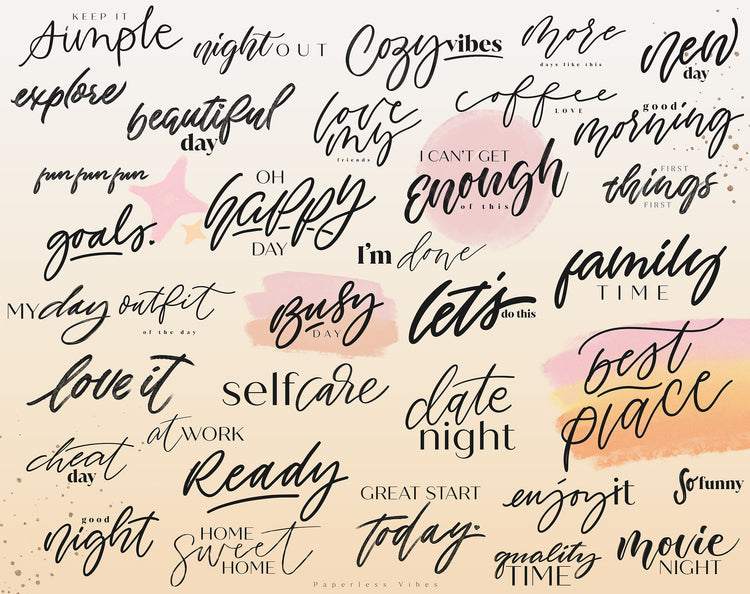 KEEP IT
simple
night OUT
Cozy vibes
more
days like this
new
day
explore
beautiful
day
love
my
friends
coffee
LOVE
good
morning
fun fun fun
OH
happy
DAY
I CAN'T GET
enough
of this
FIRST
things
FIRST
goals.
I'm done
family
TIME
MY day outfit
of the day
Busy
DAY
let's do this
best
place
love it
selfcare
date
night
cheat
day
at WORK
Ready
GREAT START
today.
enjoy it
So funny
good
night
HOME
sweet
HOME
quality
TIME
movie
NIGHT
Paperless Vibes